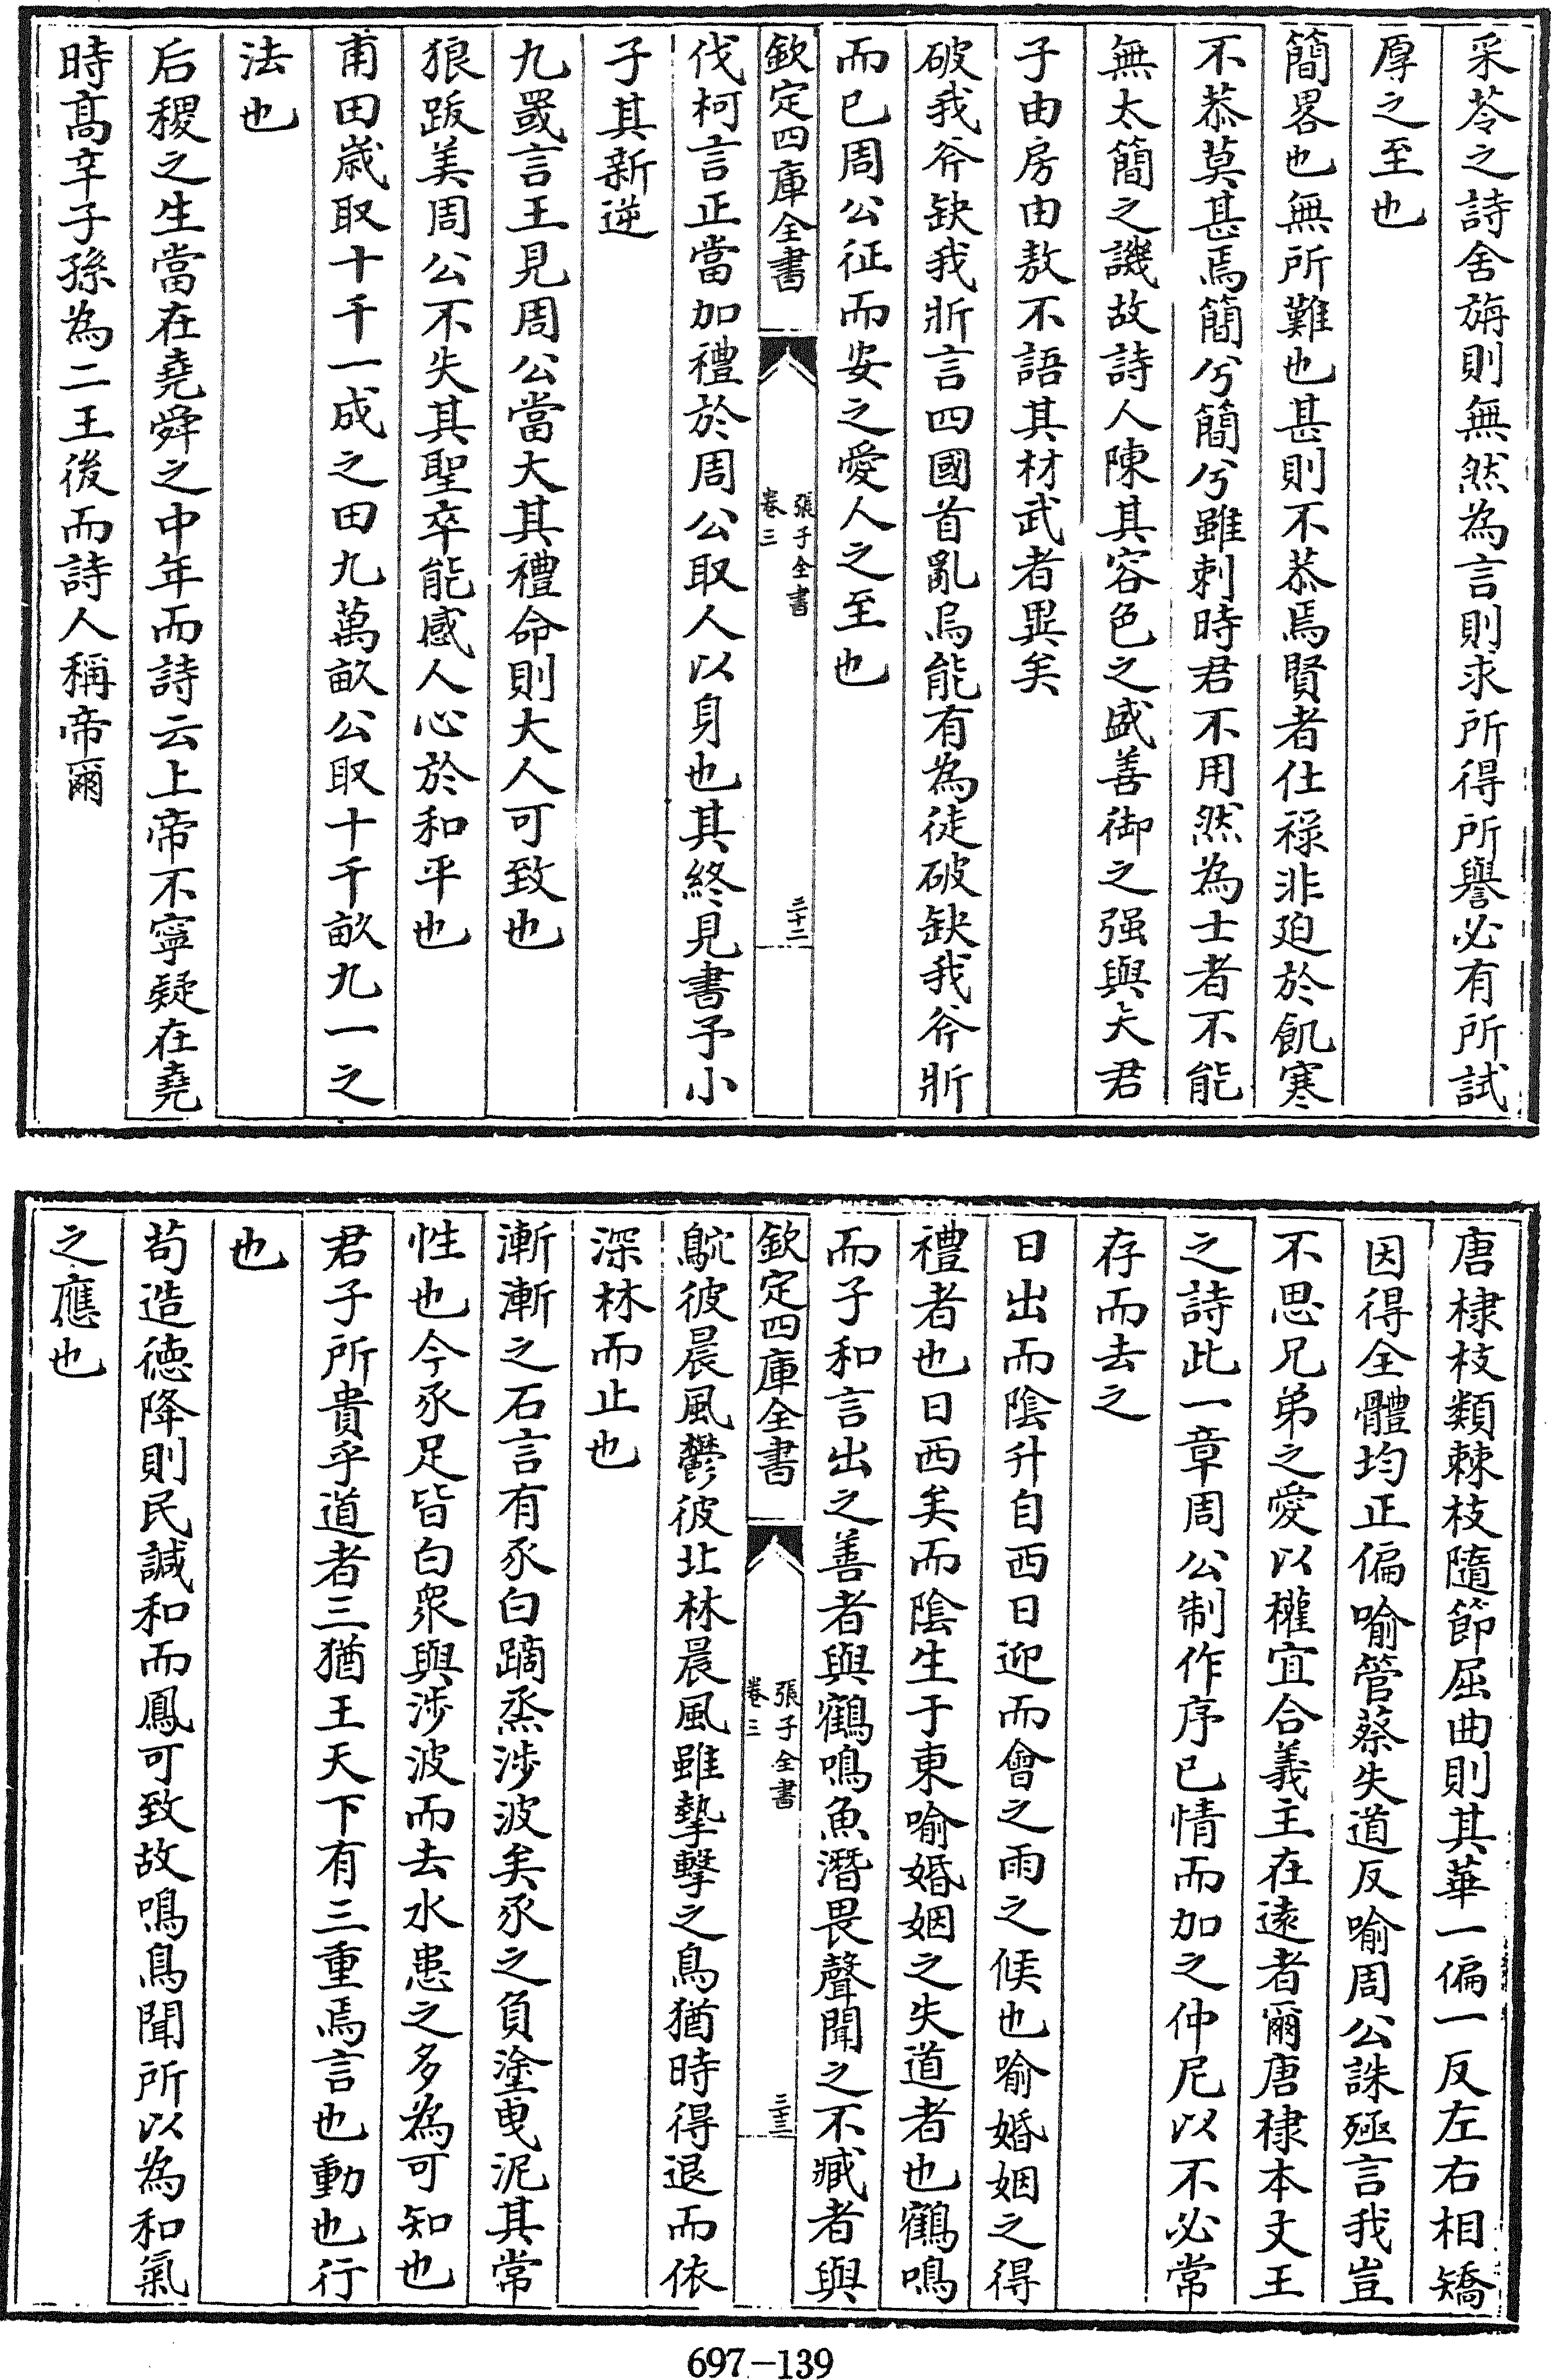 采苓之詩舍旃則無然為言則求所得所譽必有所試
厚之至也
簡畧也無所難也甚則不恭焉賢者仕祿非廹於飢寒
不恭莫甚焉簡兮簡兮雖刺時君不用然為士者不能
無太簡之譏故詩人陳其容色之盛善御之强與夫君
子由房由敖不語其材武者異矣
破我斧缺我斨言四國首亂烏能有為徒破缺我斧斨
而已周公征而安之愛人之至也
欽定四庫全書
張子全書
卷三
三十二
伐柯言正當加禮於周公取人以身也其終見書予小
子其新逆
九罭言王見周公當大其禮命則大人可致也
狼跋美周公不失其聖卒能感人心於和平也
甫田歲取十千一成之田九萬畝公取十千畝九一之
法也
后稷之生當在堯舜之中年而詩云上帝不寧疑在堯
時高辛子孫為二王後而詩人稱帝爾
唐棣枝類棘枝隨節屈曲則其華一偏一反左右相矯
因得全體均正偏喻管蔡失道反喻周公誅殛言我豈
不思兄弟之愛以權宜合義主在遠者爾唐棣本文王
之詩此一章周公制作序已情而加之仲尼以不必常
存而去之
日出而陰升自西日迎而會之雨之候也喻婚姻之得
禮者也日西矣而陰生于東喻婚姻之失道者也鶴鳴
而子和言出之善者與鶴鳴魚潛畏聲聞之不臧者與
欽定四庫全書
張子全書
卷三
三十三
鴥彼晨風鬱彼北林晨風雖摯擊之鳥猶時得退而依
深林而止也
漸漸之石言有豕白蹢烝涉波矣豕之負塗曳泥其常
性也今豕足皆白衆與涉波而去水患之多為可知也
君子所貴乎道者三猶王天下有三重焉言也動也行
也
苟造德降則民諴和而鳳可致故鳴鳥聞所以為和氣
之應也
697-139